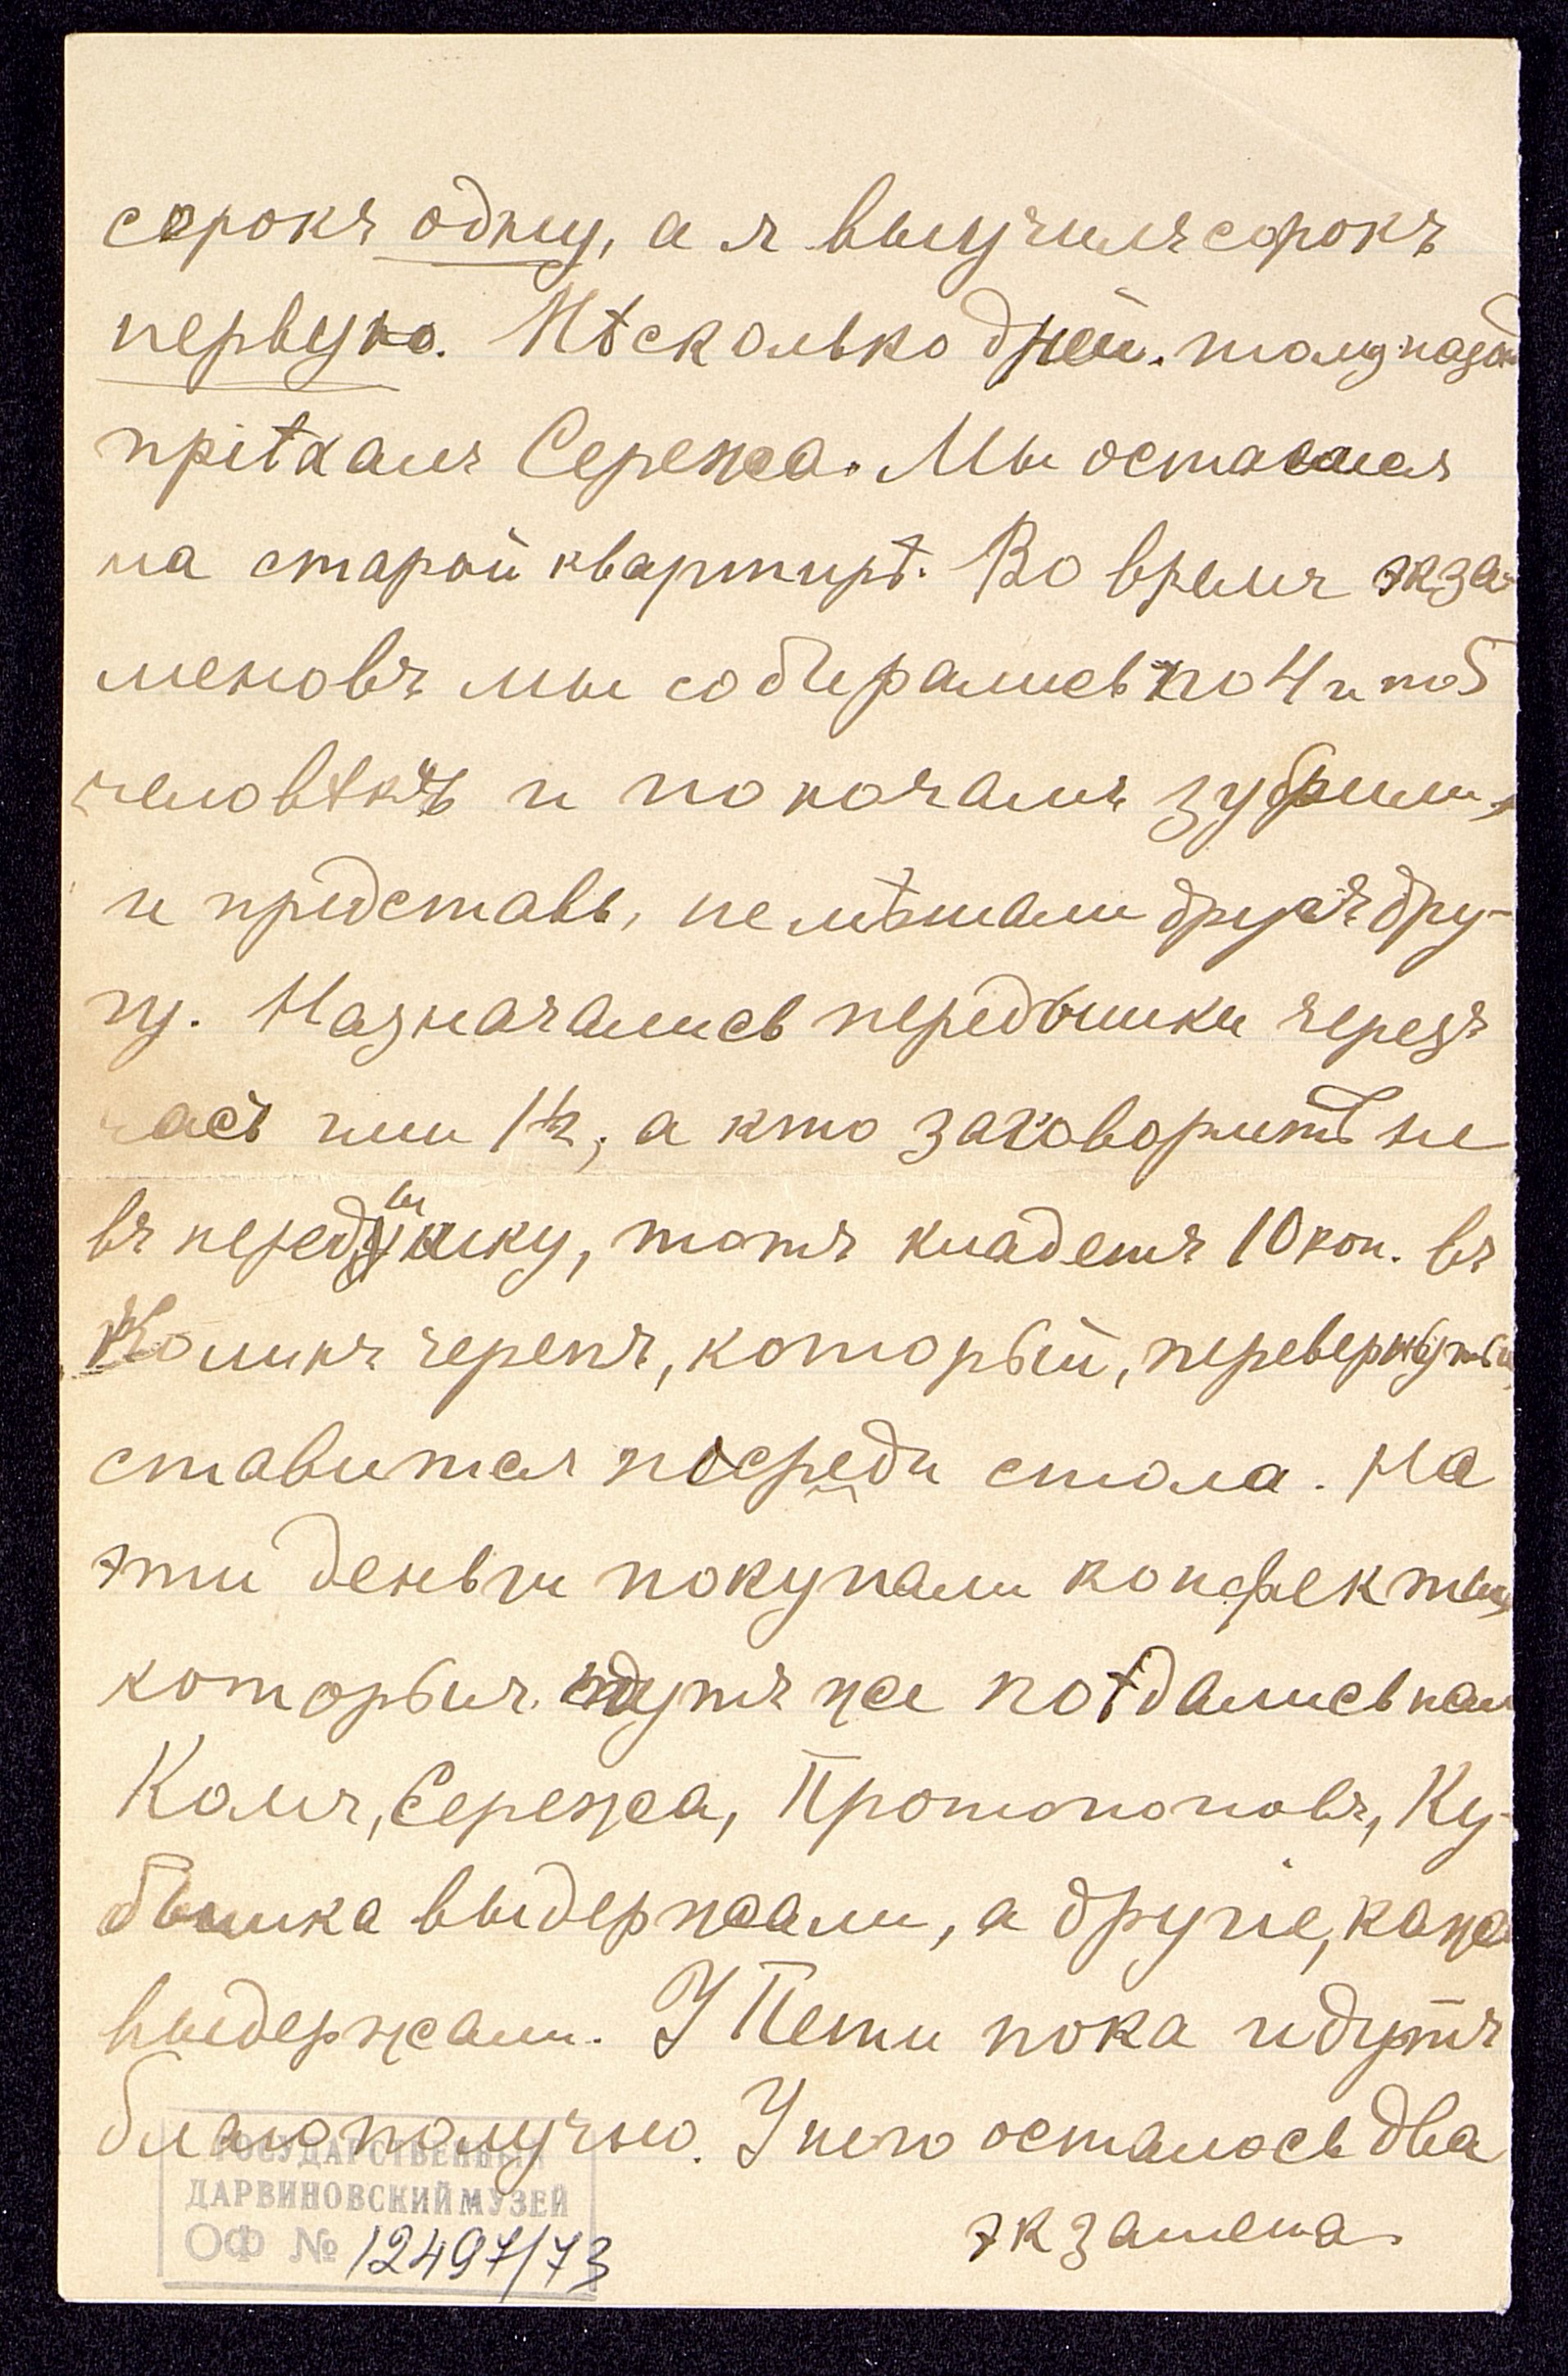 сорокъ одну, а я выучилъ сорокъ
первую. Нѣсколько дней тому назадъ
пріѣхалъ Сережа. Мы остаемся
на старой квартирѣ. Во время экза-
меновъ мы собирались по 4 и по 5
человѣкъ и по ночамъ зубрили,
и представь, не мѣшали другъ дру-
гу. Назначались передышки черезъ
часъ или 1½, а кто заговоритъ не
въ передышку, тотъ кладетъ 10 коп. въ
Колинъ черепъ, который, перевернутый,
ставится посреди стола. На
эти деньги покупали конфекты,
которыя тутъ же поѣдались нами
Коля, Сережа, Протопоповъ, Ку-
бышка выдержали, а другіе, каже
выдержали. У Пети пока идутъ
благополучно. У него осталось два
экзамена.
ГОСУДАРСТВЕННЫЙ
ДАРВИНОВСКИЙ МУЗЕЙ
ОФ № 12497/73